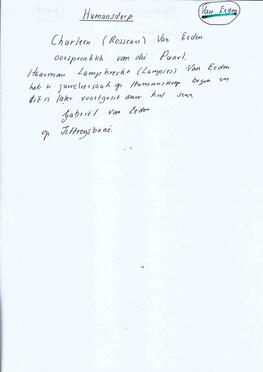 Humansdorp
Van Eeden
Charleen (Rosseau) Van Eeden
oorspronklik van die Paarl.
Haarman Lamphrecht (Lampies) Van Eeden
het 'n juwelierssaak op Humansdorp begin en
dit is later voortgesit deur hul seun
Gabriël van Eeden
op Jeffreysbaai.